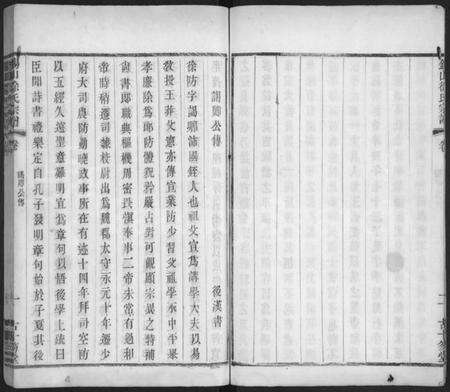 謁卿公傳
後漢書
徐防字謁卿沛國銍人也祖父宣為講學大夫以易
教授王莽父憲亦傳宣業防少習父祖學永平中舉
孝廉除為郎防體貌矜嚴占對可觀顯宗異之特補
尚書郎職典樞機周密畏慎奉事二帝未嘗有過和
帝時稍遷司隸校尉出為魏郡太守永元十年遷少
府大司農防勤曉政事所在有迹十四年拜司空防
以五經久遠聖意難明宜為章句以悟後學上疏曰
臣聞詩書禮樂定自孔子發明章句始於子夏其後
山徐氏宗譜
卷
謁卿公傳
一